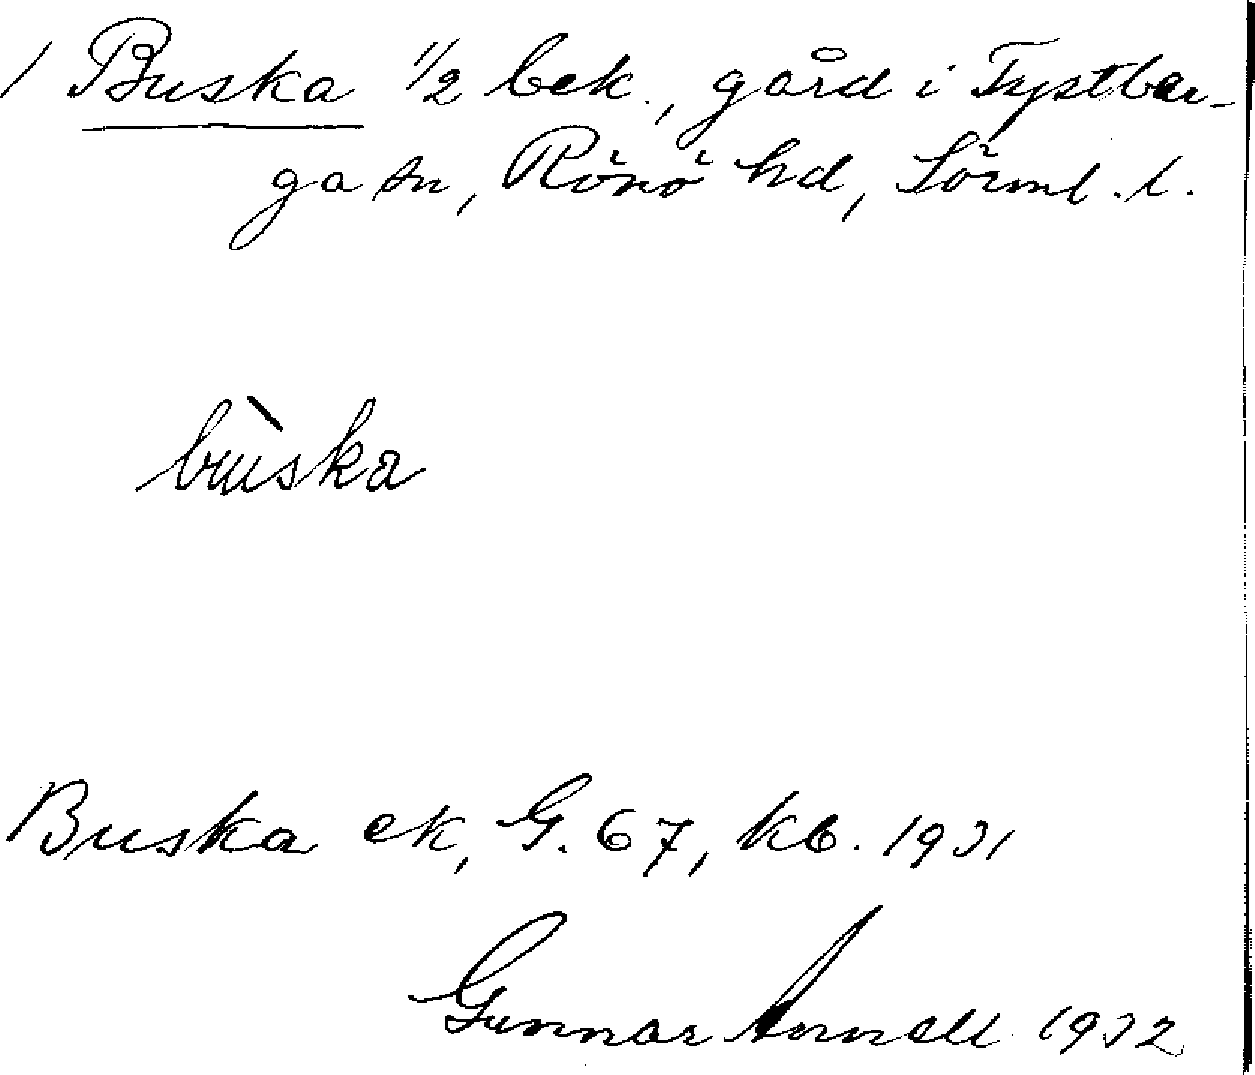 / Buska 1/2 bek., gård i Tystber-
ga sn, Rönö hd, Sörml. l.
bùska
Buska ek, G. 67, kb. 1931
Gunnar Annell 1932